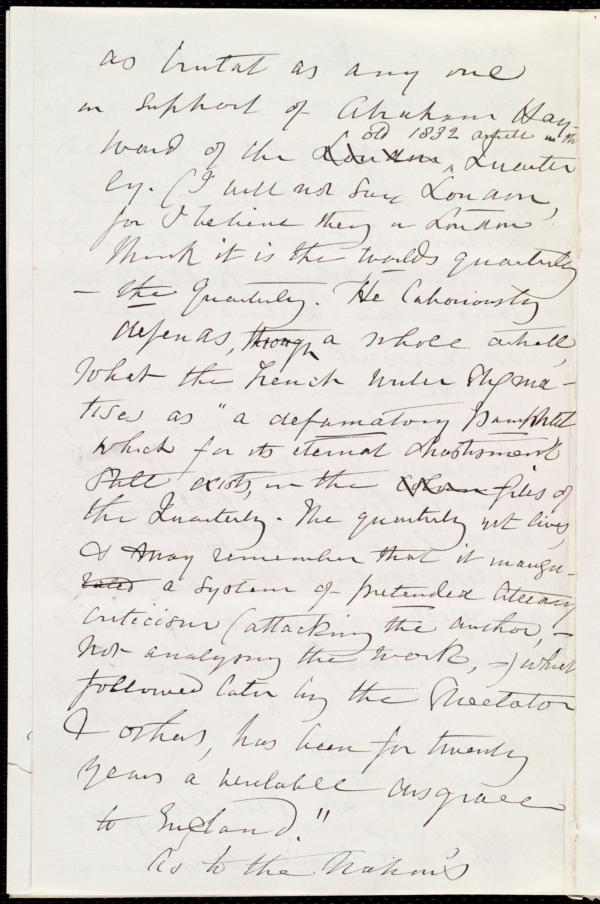 as brutal as any one
in support of Abraham Hay-
old 1832 article in the
ward of the London Quarter
ly. (I will not say London,
for I believe they in London
think it is the worlds quarterly
- the Quarterly. He laboriously
defends, through a whole article,
What the French writer stigma-
tises as "a defamatory pamphlet
which for its eternal chastisement
still exists, in the files of
the Quarterly. The quarterly yet lives,
& may remember that it inaugu-
rated a system of pretended literary
criticism (attacking the author, -
not analysing the work, -) which
followed later by the Spectator
& others, has been for twenty
years a veritable disgrace
to England."
As to the Nation's